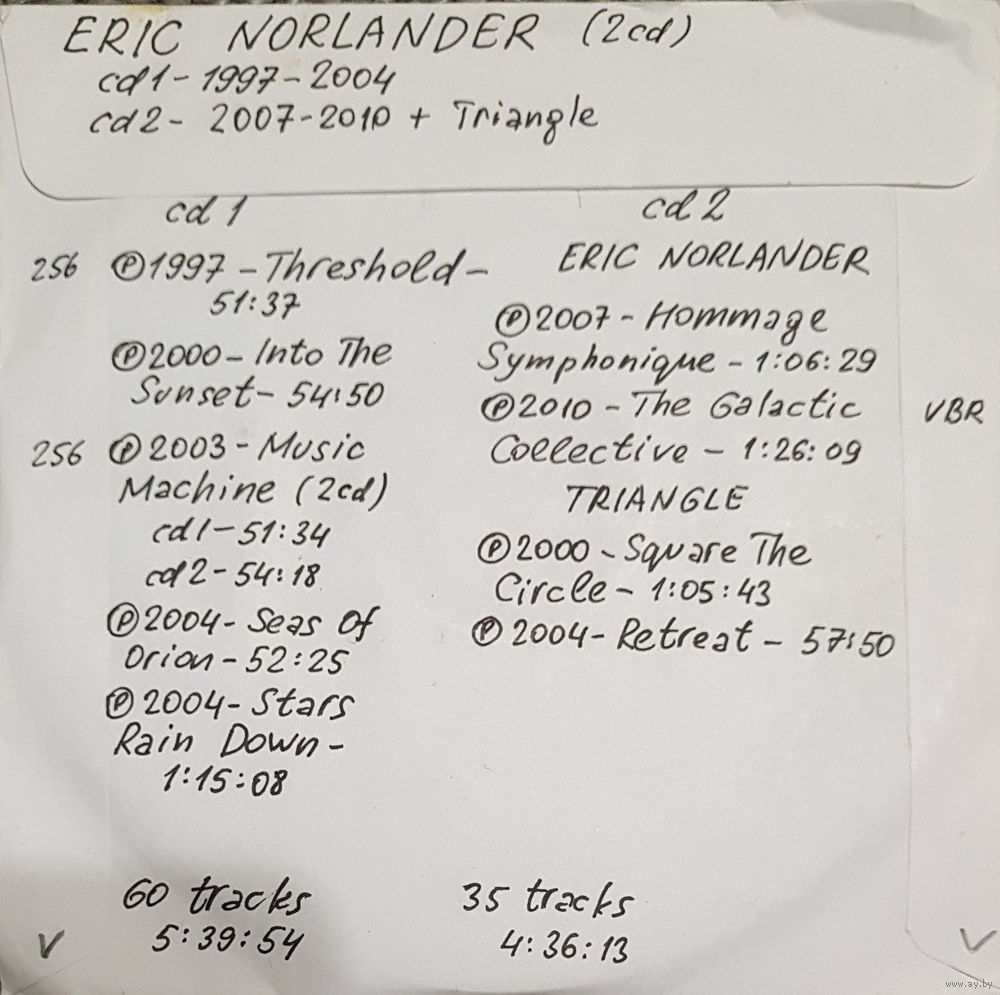 ERIC NORLANDER (2cd)
cd1-1997-2004
cd2- 2007-2010 + Triangle
cd 1
256 Ⓟ1997 - Threshold -
51:37
Ⓟ2000 - Into The
Sunset - 54:50
256 Ⓟ2003 - Music
Machine (2cd)
cd1-51:34
cd2-54:18
Ⓟ2004 - Seas Of
Orion - 52:25
Ⓟ2004 - Stars
Rain Down -
1:15:08
60 tracks
5:39:54
V
cd 2
ERIC NORLANDER
Ⓟ2007 - Hommage
Symphonique - 1:06:29
Ⓟ2010 - The Galactic VBR
Collective - 1:26:09
TRIANGLE
Ⓟ2000 - Square The
Circle - 1:05:43
Ⓟ2004 - Retreat - 57:50
35 tracks
4:36:13
V
www.ay.by